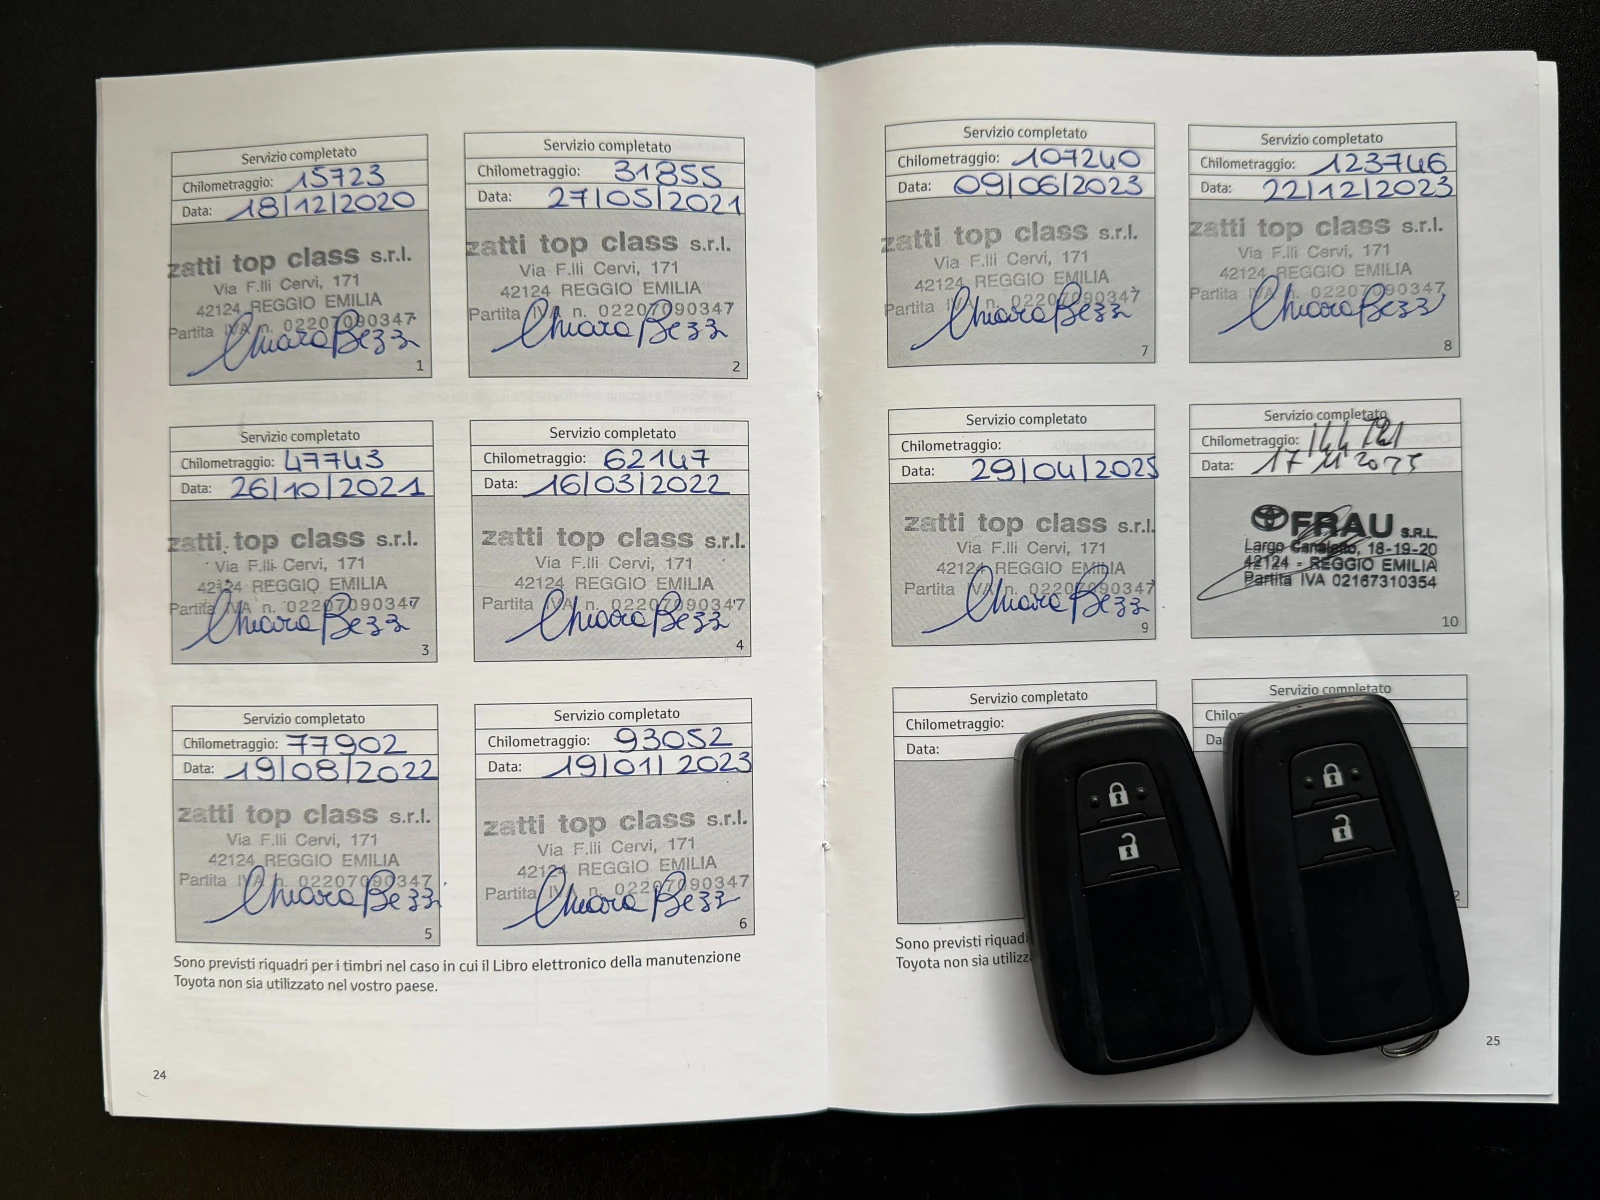 Servizio completato
Chilometraggio: 15723
Data: 18/12/2020
zatti top class s.r.l.
Via F.lli Cervi, 171
42124 REGGIO EMILIA
Partita IVA n. 02207090347
Chiara Bezzi
1
Servizio completato
Chilometraggio: 31855
Data: 27/05/2021
zatti top class s.r.l.
Via F.lli Cervi, 171
42124 REGGIO EMILIA
Partita IVA n. 02207090347
Chiara Bezzi
2
Servizio completato
Chilometraggio: 47743
Data: 26/10/2021
zatti top class s.r.l.
Via F.lli Cervi, 171
42124 REGGIO EMILIA
Partita IVA n. 02207090347
Chiara Bezzi
3
Servizio completato
Chilometraggio: 62147
Data: 16/03/2022
zatti top class s.r.l.
Via F.lli Cervi, 171
42124 REGGIO EMILIA
Partita IVA n. 02207090347
Chiara Bezzi
4
Servizio completato
Chilometraggio: 77902
Data: 19/08/2022
zatti top class s.r.l.
Via F.lli Cervi, 171
42124 REGGIO EMILIA
Partita IVA n. 02207090347
Chiara Bezzi
5
Servizio completato
Chilometraggio: 93052
Data: 19/01/2023
zatti top class s.r.l.
Via F.lli Cervi, 171
42124 REGGIO EMILIA
Partita IVA n. 02207090347
Chiara Bezzi
6
Sono previsti riquadri per i timbri nel caso in cui il Libro elettronico della manutenzione
Toyota non sia utilizzato nel vostro paese.
24
Servizio completato
Chilometraggio: 107240
Data: 09/06/2023
zatti top class s.r.l.
Via F.lli Cervi, 171
42124 REGGIO EMILIA
Partita IVA n. 02207090347
Chiara Bezzi
7
Servizio completato
Chilometraggio: 123746
Data: 22/12/2023
zatti top class s.r.l.
Via F.lli Cervi, 171
42124 REGGIO EMILIA
Partita IVA n. 02207090347
Chiara Bezzi
8
Servizio completato
Chilometraggio:
Data: 29/04/2025
zatti top class s.r.l.
Via F.lli Cervi, 171
42124 REGGIO EMILIA
Partita IVA n. 02207090347
Chiara Bezzi
9
Servizio completato
Chilometraggio:
Data: 17 11 2025
FRAU S.R.L.
Largo Canaletto, 18-19-20
42124 - REGGIO EMILIA
Partita IVA 02167310354
10
Servizio completato
Chilometraggio:
Data:
Servizio completato
Chilo
Da
2
Sono previsti riquad
Toyota non sia utilizz
25